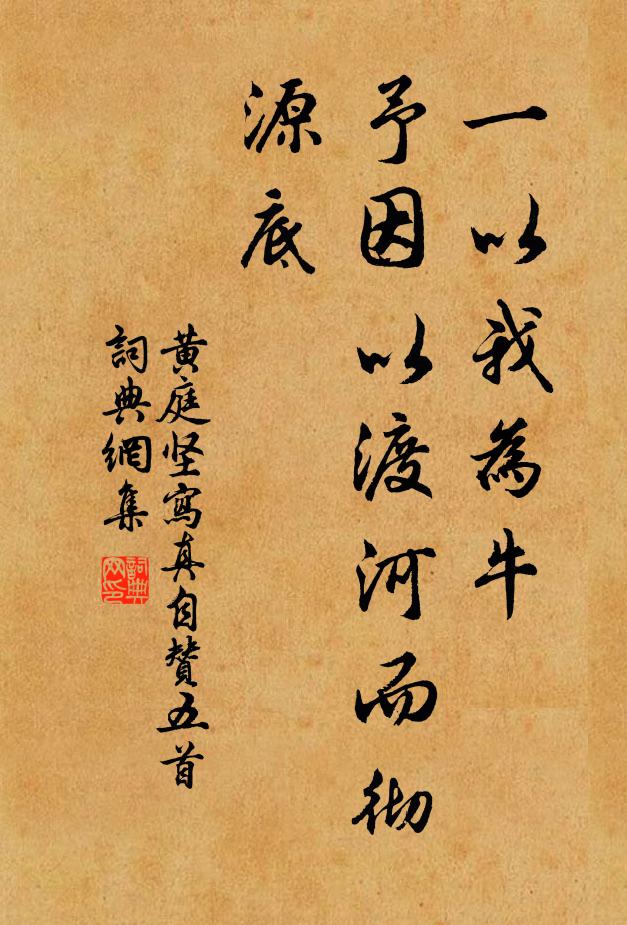 一以我為牛
予因以渡河而彻
源底
黄庭坚寫真自贊五首
詞典網集
詞典
网印